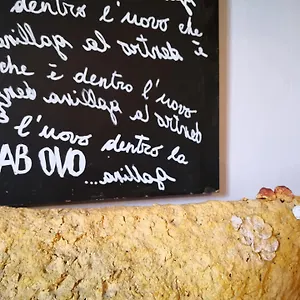 dentro l'uovo che
è dentro la gallina
che è dentro l'uovo
dentro la gallina
l'uovo dentro la
AB OVO
gallina...